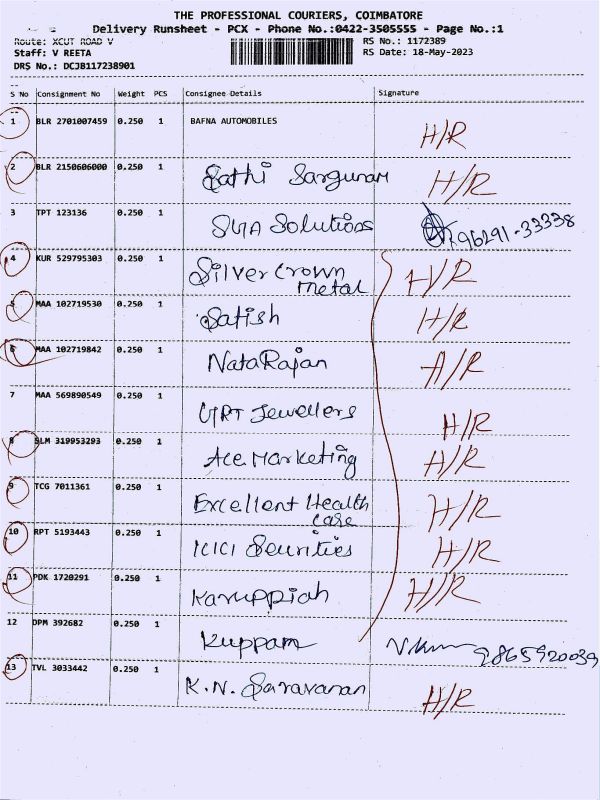 THE PROFESSIONAL COURIERS, COIMBATORE
Delivery Runsheet - PCX - Phone No.:0422-3505555 - Page No.:1
Route: XCUT ROAD V
RS No.: 1172389
Staff: V REETA
RS Date: 18-May-2023
DRS No.: DCJB117238901
S No Consignment No Weight PCS Consignee Details Signature
1 BLR 2701007459 0.250 1 BAFNA AUTOMOBILES H/R
2 BLR 2150606000 0.250 1 Sathi Sargunam H/R
3 TPT 123136 0.250 1 Solutions 96291-33338
4 KUR 529795303 0.250 1 Silver Crown Metal H/R
5 MAA 102719530 0.250 1 Satish H/R
6 MAA 102719842 0.250 1 NataRajan H/R
7 MAA 569890549 0.250 1 GRT Jewellers H/R
8 SLM 319953293 0.250 1 Ace Marketing H/R
9 TCG 7011361 0.250 1 Excellent Health Care H/R
10 RPT 5193443 0.250 1 ICICI Seurities H/R
11 PDK 1720291 0.250 1 Karuppiah H/R
12 DPM 392682 0.250 1 Kuppam 9865920039
13 TVL 3033442 0.250 1 K.N. Saravanan H/R